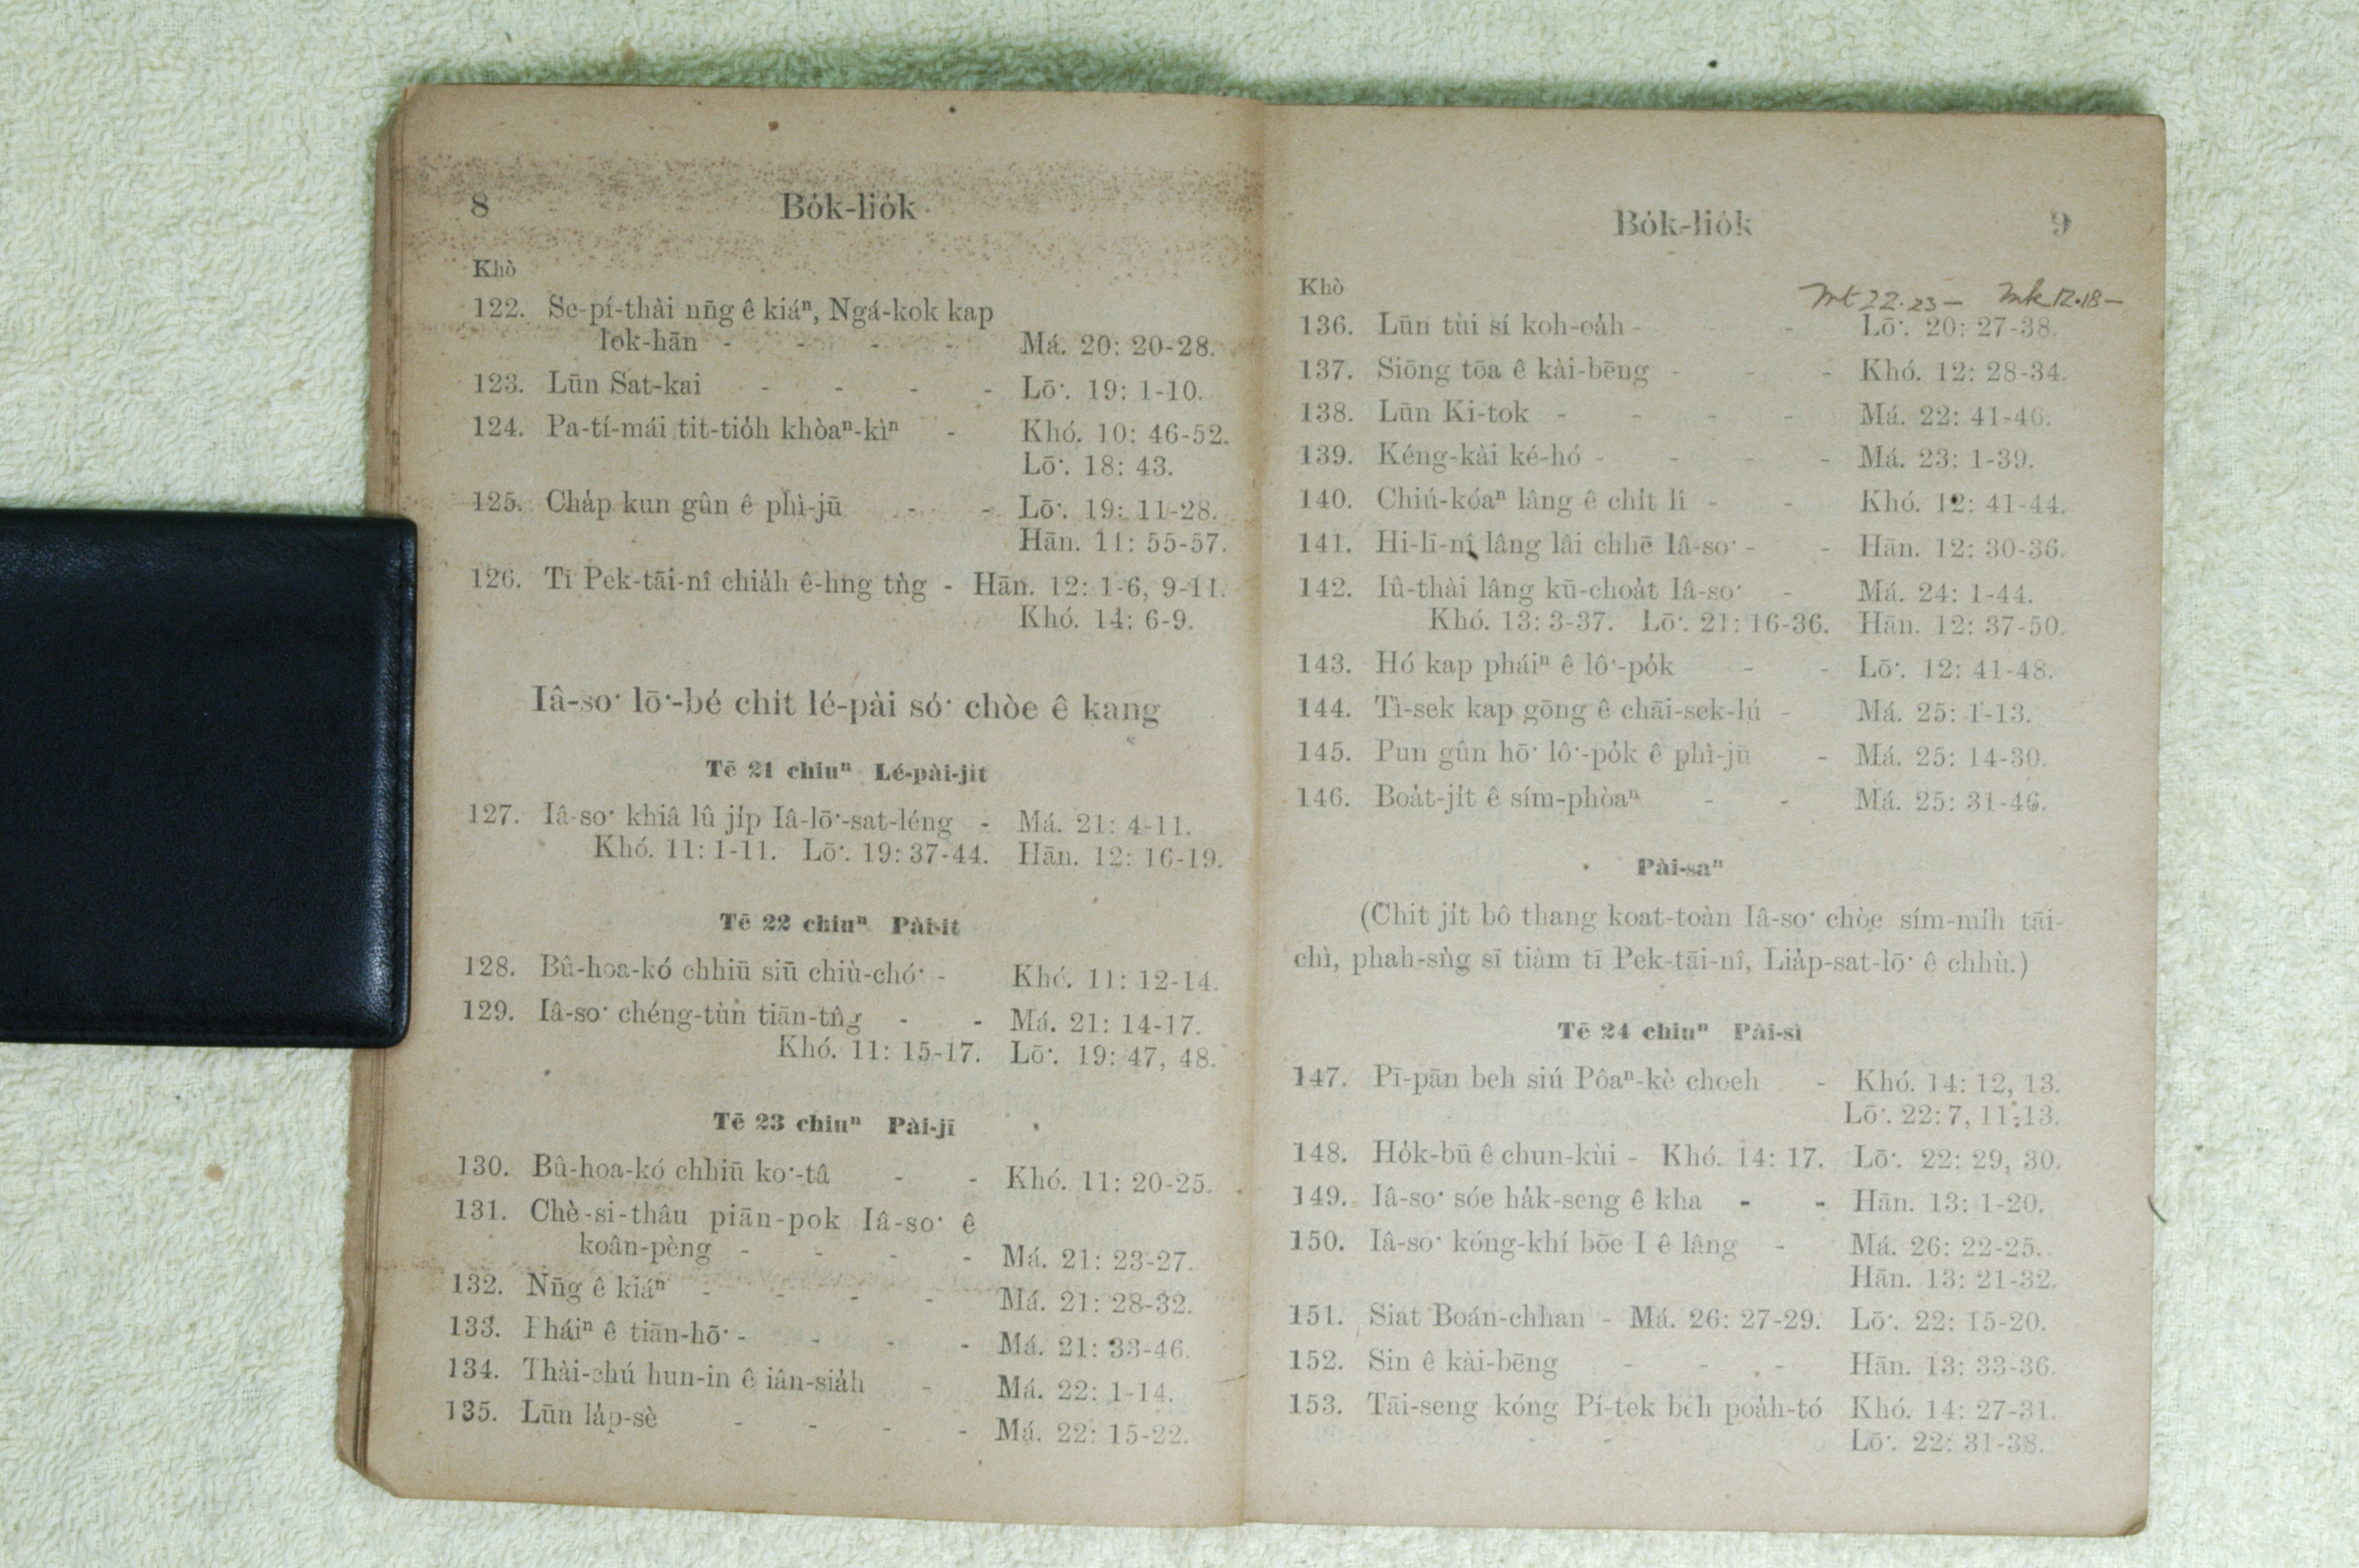 8 Bo̍k-lio̍k
Khò
122. Se-pí-thài nn̄g ê kiáⁿ, Ngá-kok kap
Iok-hān - - - - Má. 20: 20-28.
123. Lūn Sat-kai - - - - Lō͘. 19: 1-10.
124. Pa-tí-mái tit-tio̍h khòaⁿ-kìⁿ - Khó. 10: 46-52.
Lō͘. 18: 43.
125. Cha̍p kun gûn ê phì-jū - - Lō͘. 19: 11-28.
Hān. 11: 55-57.
126. Tī Pek-tāi-nî chia̍h ê-hng tǹg - Hān. 12: 1-6, 9-11.
Khó. 14: 6-9.
Iâ-so͘ lō͘-bé chit lé-pài só͘ chòe ê kang
Tē 21 chiuⁿ Lé-pài-jit
127. Iâ-so͘ khiâ lû ji̍p Iâ-lō͘-sat-léng - Má. 21: 4-11.
Khó. 11: 1-11. Lō͘. 19: 37-44. Hān. 12: 16-19.
Tē 22 chiuⁿ Pài-it
128. Bû-hoa-kó chhiū siū chiù-chó͘ - Khó. 11: 12-14.
129. Iâ-so͘ chéng-tùn tiān-tn̂g - - Má. 21: 14-17.
Khó. 11: 15-17. Lō͘. 19: 47, 48.
Tē 23 chiuⁿ Pài-jī
130. Bû-hoa-kó chhiū ko͘-tâ - - Khó. 11: 20-25.
131. Chè-si-thâu piān-pok Iâ-so͘ ê
koân-pèng - - - - Má. 21: 23-27.
132. Nn̄g ê kiáⁿ - - - - Má. 21: 28-32.
133. Pháiⁿ ê tiān-hō͘ - - - - Má. 21: 33-46.
134. Thài-chú hun-in ê iân-sia̍h - Má. 22: 1-14.
135. Lūn la̍p-sè - - - - Má. 22: 15-22.
Bo̍k-lio̍k 9
Khò
Mt 22.23— Mk 12.18—
136. Lūn tùi sí koh-oa̍h - - - Lō͘. 20: 27-38.
137. Siōng tōa ê kài-bēng - - - Khó. 12: 28-34.
138. Lūn Ki-tok - - - - Má. 22: 41-46.
139. Kéng-kài ké-hó - - - - Má. 23: 1-39.
140. Chiú-kóaⁿ lâng ê chi̍t lî - - Khó. 12: 41-44.
141. Hi-lī-nî lâng lâi chhē Iâ-so͘ - - Hān. 12: 30-36.
142. Iû-thài lâng kū-choa̍t Iâ-so͘ - Má. 24: 1-44.
Khó. 13: 3-37. Lō͘. 21: 16-36. Hān. 12: 37-50.
143. Hó kap pháiⁿ ê lô͘-po̍k - - Lō͘. 12: 41-48.
144. Tì-sek kap gōng ê chāi-sek-lú - Má. 25: 1-13.
145. Pun gûn hō͘ lô͘-po̍k ê phì-jū - Má. 25: 14-30.
146. Boa̍t-ji̍t ê sím-phòaⁿ - - Má. 25: 31-46.
Pài-saⁿ
(Chit ji̍t bô thang koat-toàn Iâ-so͘ chòe sím-mi̍h tāi-
chì, phah-sǹg sī tiàm tī Pek-tāi-nî, Lia̍p-sat-lō͘ ê chhù.)
Tē 24 chiuⁿ Pài-sì
147. Pī-pān beh siú Pôaⁿ-kè choeh - Khó. 14: 12, 13.
Lō͘. 22: 7, 11-13.
148. Ho̍k-bū ê chun-kùi - Khó. 14: 17. Lō͘. 22: 29, 30.
149. Iâ-so͘ sóe ha̍k-seng ê kha - - Hān. 13: 1-20.
150. Iâ-so͘ kóng-khí bōe I ê lâng - Má. 26: 22-25.
Hān. 13: 21-32.
151. Siat Boán-chhan - Má. 26: 27-29. Lō͘. 22: 15-20.
152. Sin ê kài-bēng - - - Hān. 13: 33-36.
153. Tāi-seng kóng Pí-tek beh poa̍h-tó Khó. 14: 27-31.
Lō͘. 22: 31-38.